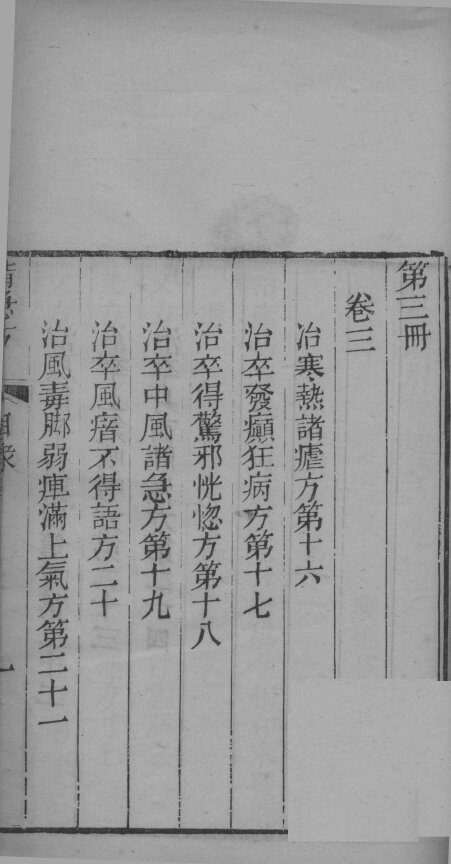 第三冊
卷三
治寒熱諸瘧方第十六
治卒發癲狂病方第十七
治卒得驚邪恍惚方第十八
治卒中風諸急方第十九
治卒風瘖不得語方二十
治風毒脚弱痺滿上氣方第二十一
目錄
一